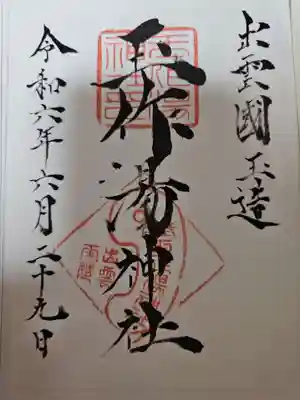 出雲國玉造
玉作湯神社
令和六年六月二十九日